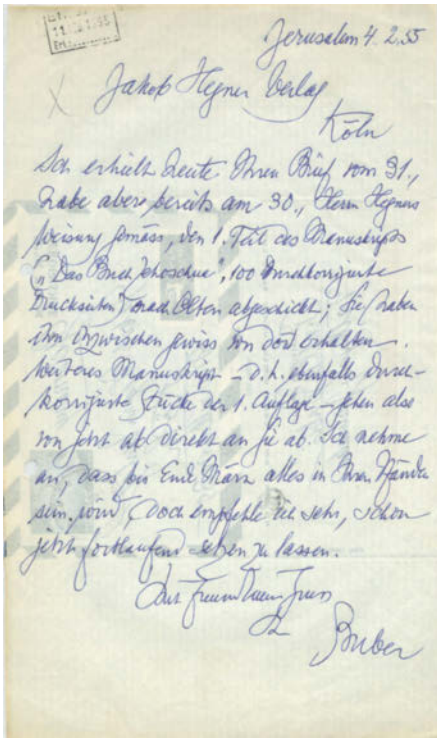 Jerusalem 4. 2. 55
Jakob Hegner Verlag
Köln
Ich erhielt heute Ihren Brief vom 31.,
habe aber bereits am 30., Herrn Hegners
Weisung gemäss, den 1. Teil des Manuskripts
(„Das Buch Jehoschua", 100 durchkorrigierte
Druckseiten) nach Olten abgeschickt; Sie haben
ihn inzwischen gewiss von dort erhalten.
Weiteres Manuskript – d. h. ebenfalls durch-
korrigierte Stücke der 1. Auflage – gehen also
von jetzt ab direkt an Sie ab. Ich nehme
an, dass bis Ende März alles in Ihren Händen
sein wird, doch empfehle ich sehr, schon
jetzt fortlaufend setzen zu lassen.
Mit freundlichem Gruss
Ihr
Buber